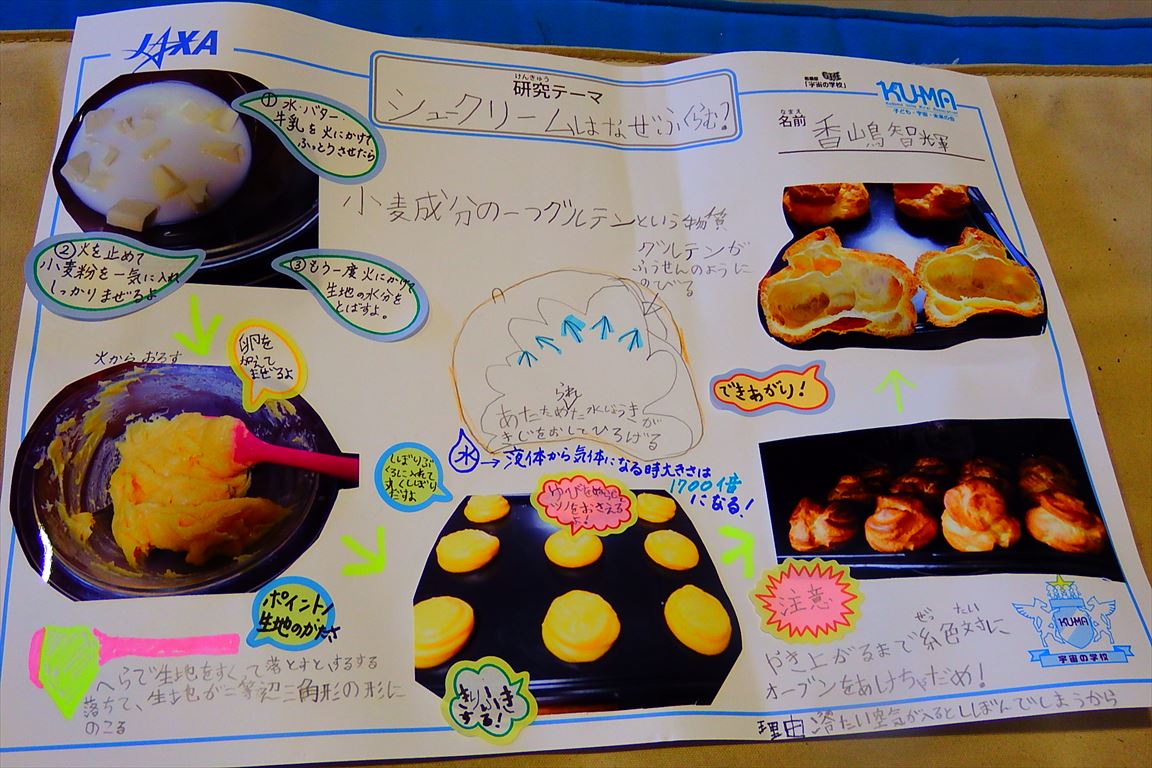 JAXA
けんきゅう
研究テーマ
シュークリームはなぜふくらむ?
「宇宙の学校」
KU-MA
子ども・宇宙・未来の会
なまえ
名前
香嶋智輝
① 水・バター・
牛乳を火にかけて
ふっとうさせたら
② 火を止めて
小麦粉を一気に入れ
しっかりまぜるよ
③ もう一度火にかけて
生地の水分を
とばすよ。
小麦成分の一つグルテンという物質
グルテンが
ふうせんのように
のびる
られ
あたためた水じょうきが
きじをおしてひろげる
水→液体から気体になる時大きさは
1700倍
になる!
火からおろす
卵を
加えて
まぜるよ
ポイント!
生地のかたさ
へらで生地をすくって落とすとするする
落ちて、生地が二等辺三角形の形に
のこる
しぼりぶ
くろに入れて
丸くしぼり
だすよ
ゆびをぬらし
ツノをおさえる
よ!
きりふき
する!
できあがり!
注意
ぜっ たい
やき上がるまで絶対に
オーブンをあけちゃだめ!
理由 冷たい空気が入るとしぼんでしまうから
KU-MA
宇宙の学校